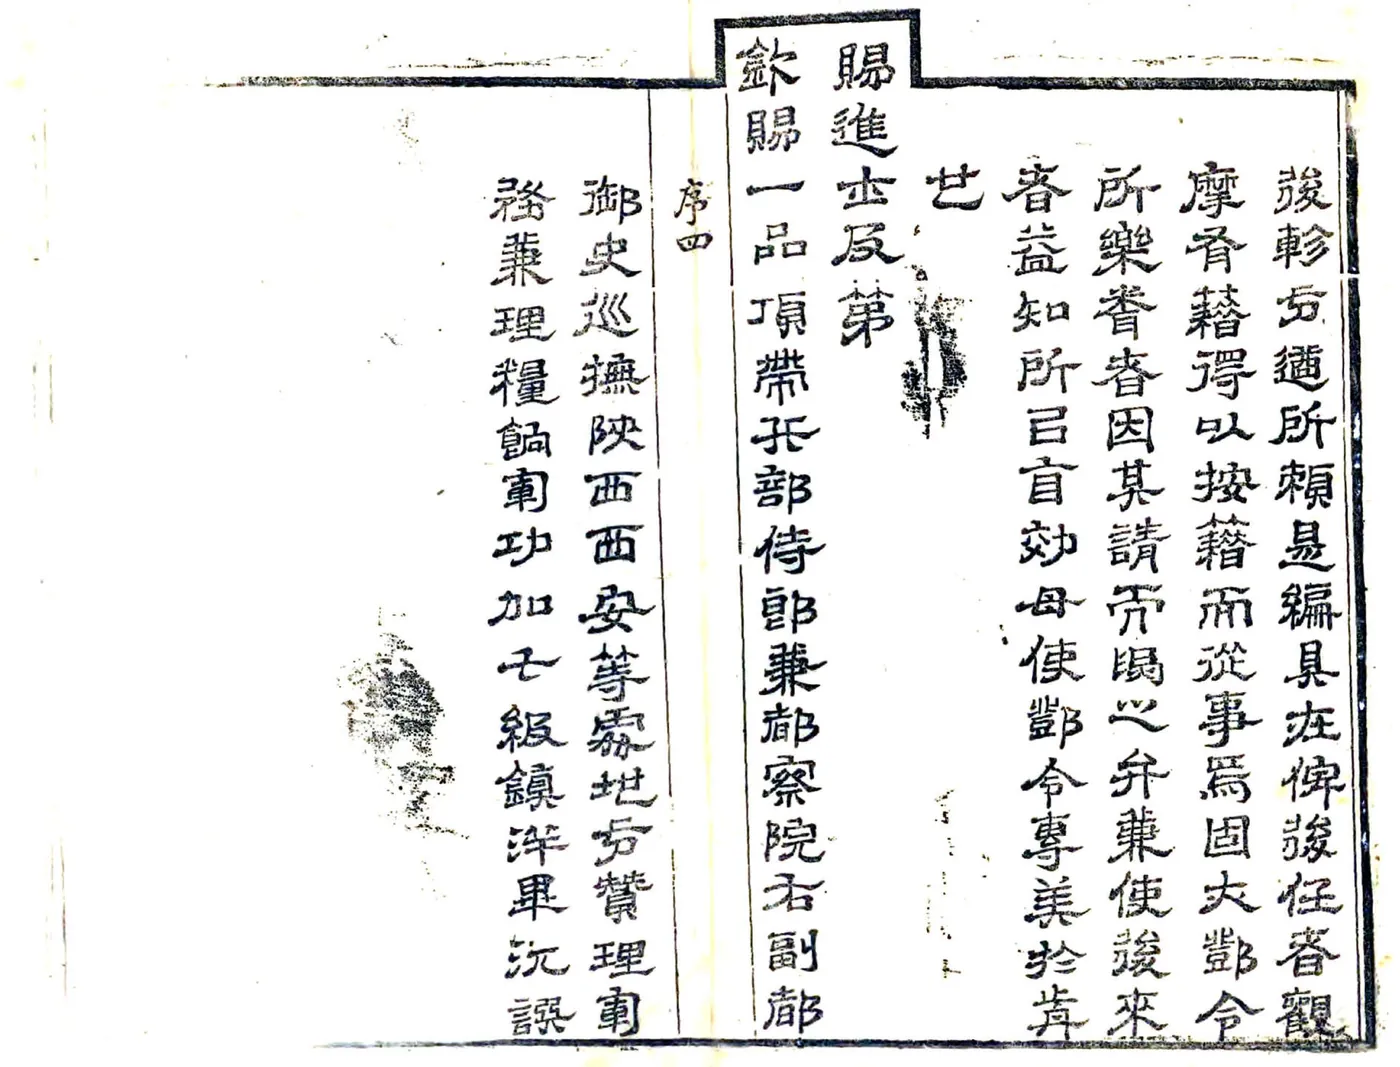 後軫方遒所賴是編具在俾後任者觀
摩有藉得以按籍而從事焉固大鄧令
所樂者因其請而之弁兼使後來
者益知所㠯自効毋使鄧令專美於前
也
賜進士及第
欽賜一品頂帶兵部侍郎兼都察院右副都
序四
御史巡撫陝西西安等處地方贊理軍
務兼理糧餉軍功加七級鎮洋畢沅譔